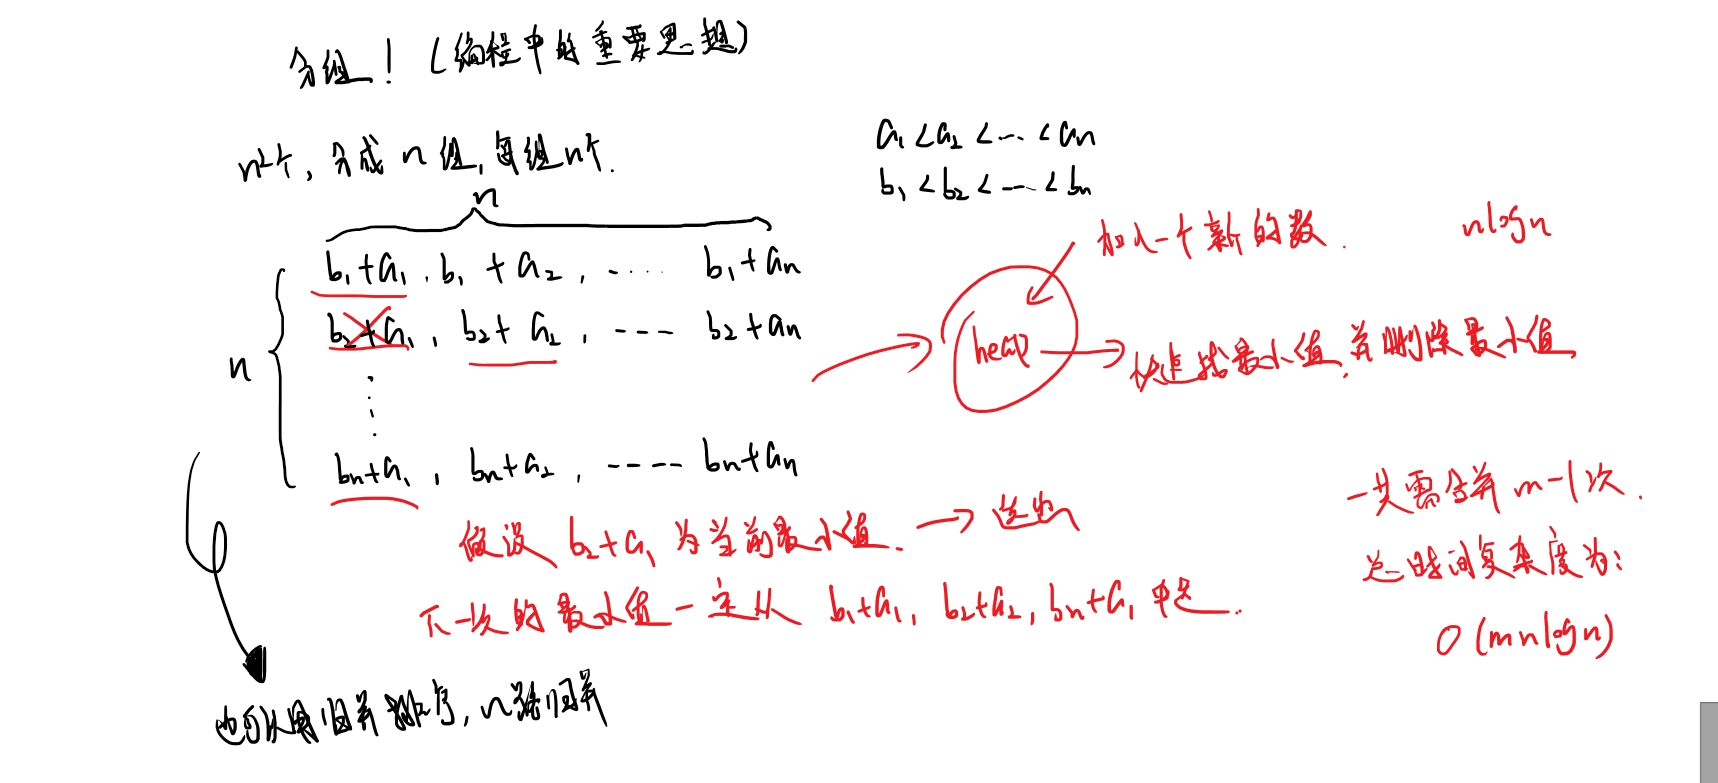 分组！（编程中的重要思想）
n²个，分成 n 组，每组n个.
a₁ < a₂ < ... < an
b₁ < b₂ < ... < bn
n
b₁+a₁, b₁+a₂, ..... b₁+an
b₂+a₁, b₂+a₂, ---- b₂+an
n
bn+a₁, bn+a₂, ----- bn+an
加入一个新的数.
nlogn
heap
快速找最小值，并删除最小值
假设 b₂+a₁ 为当前最小值. → 选出
下一次的最小值一定从 b₁+a₁, b₂+a₂, bn+a₁ 中选.
一共需合并 m-1次.
总时间复杂度为:
O(mnlogn)
也可以用归并排序, n路归并